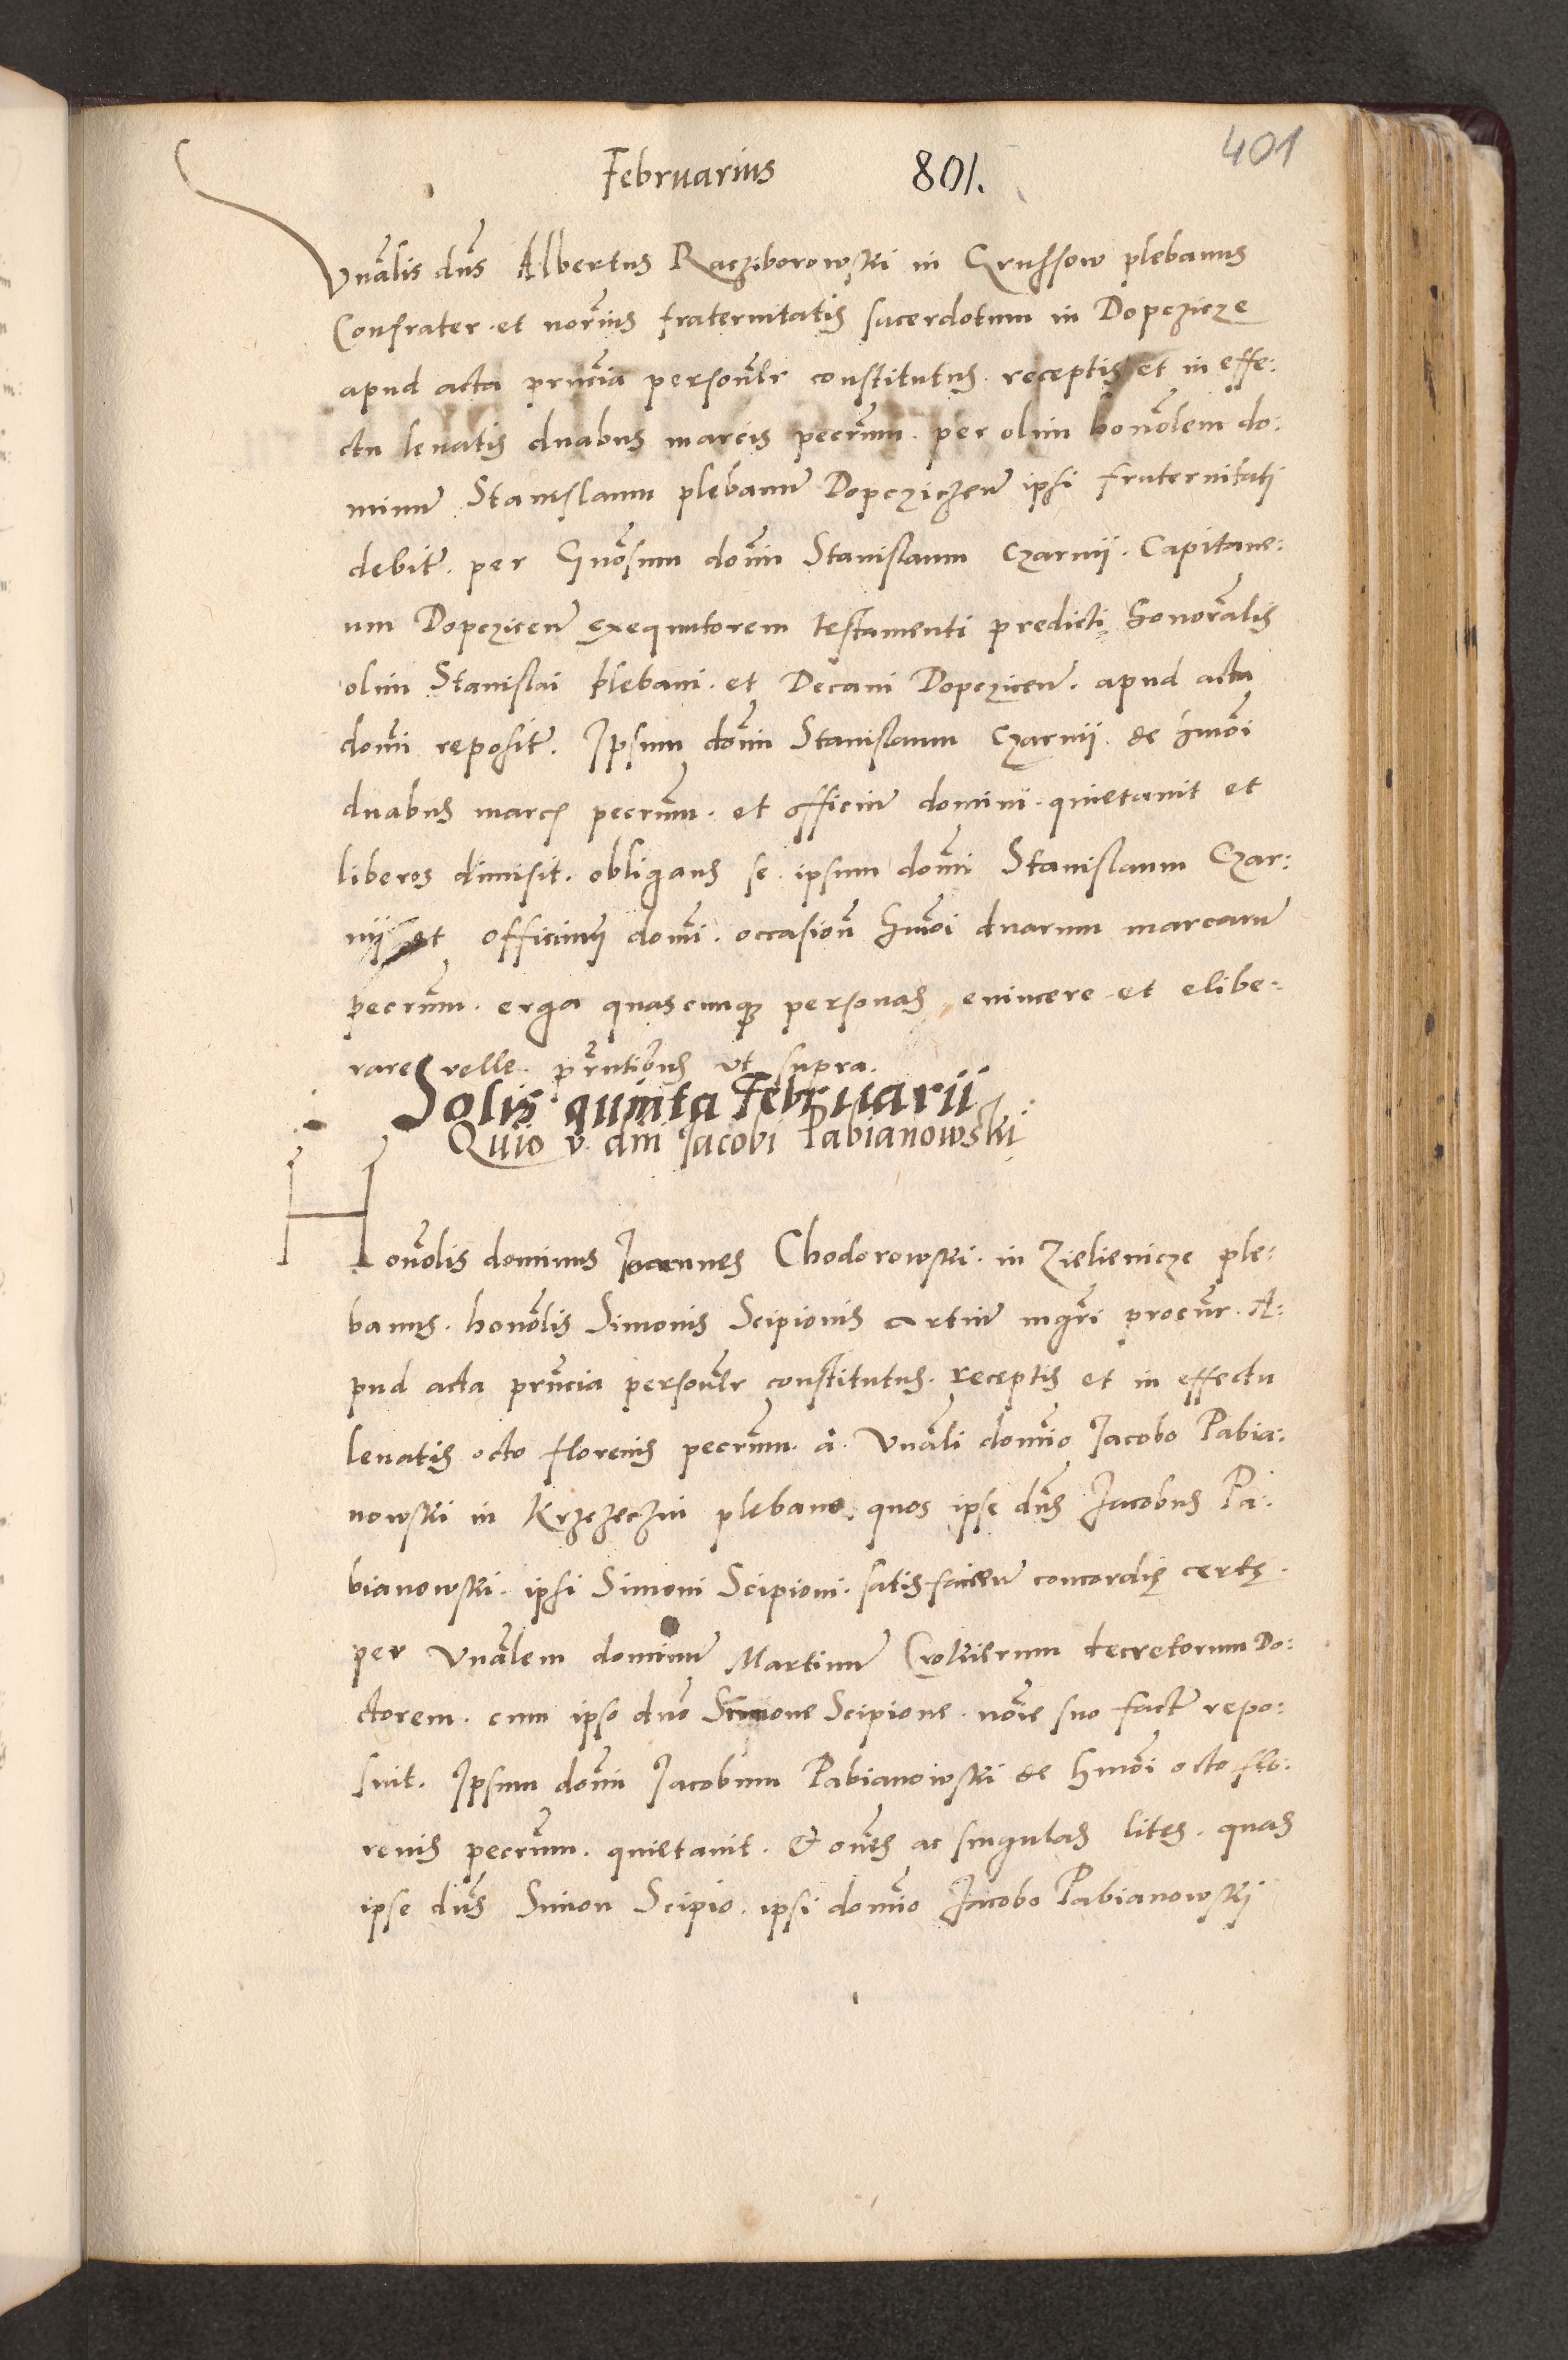 401
Februarius 801.
Vnãlis dñs Albertus Racziborowski in Gruschow plebanus
Confrater et noĩnus fraternitatis sacerdotum in Dopczicze
apud acta pñcia personlr constitutus. receptis et in effe:
ctu leuatis duabus marcis pecrum. per olim honõlem do:
minu Stanislaum plebanu Dopcziczen ipsi fraternitati
debit. per Gnõsum domĩ Stanislaum Czarnij. Capitane:
um Dopczicen exequutorem testamenti predicti honorãlis
olim Stanislai plebani. et Decani Dopczicen. apud acta
domĩ reposit. Ipsum domĩ Stanislaum Czarnij. de hmõi
duabus marc pecrum. et officiu domini. quietauit et
liberos dimisit. obligans se ipsum domĩ Stanislaum Czar:
nij et officium domĩ. occasioñ hmõi duarum marcaru
pecrum. erga quascunq personas, euincere et elibe:
rare velle. pñtibus vt supra.
Solis quinta Februarii
Quio v. dni Jacobi Pabianowski
Honõlis dominus Joannes Chodorowski. in Zielienicze ple:
banus. honõlis Simonis Scipionis artiu mgrĩ procur. A:
pud acta pñcia personlr constitutus. receptis et in effectu
leuatis octo florenis pecrum. a. Vnãli domĩo Jacobo Pabia:
nowski in Krzczeczin plebano. quos ipse dñs Jacobus Pa:
bianowski. ipsi Simoni Scipioni. satisfacien concordię certę.
per Vnãlem dominu Martinu Crokierum decretorum Do:
ctorem. cum ipso dno Simone Scipione. noĩe suo fact repo:
suit. Ipsum domĩ Jacobum Pabianowski de hmõi octo flo:
renis pecrum. quietauit. & oñes ac singulas lites. quas
ipse dñs Simon Scipio. ipsi domĩo Jacobo Pabianowski